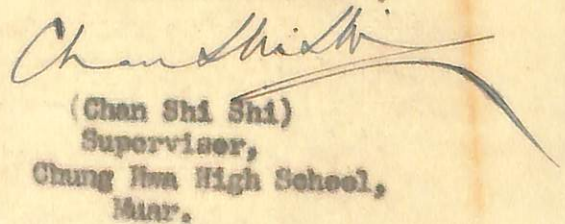 Chan Shi Shi
(Chan Shi Shi)
Supervisor,
Chung Hwa High School,
Muar.